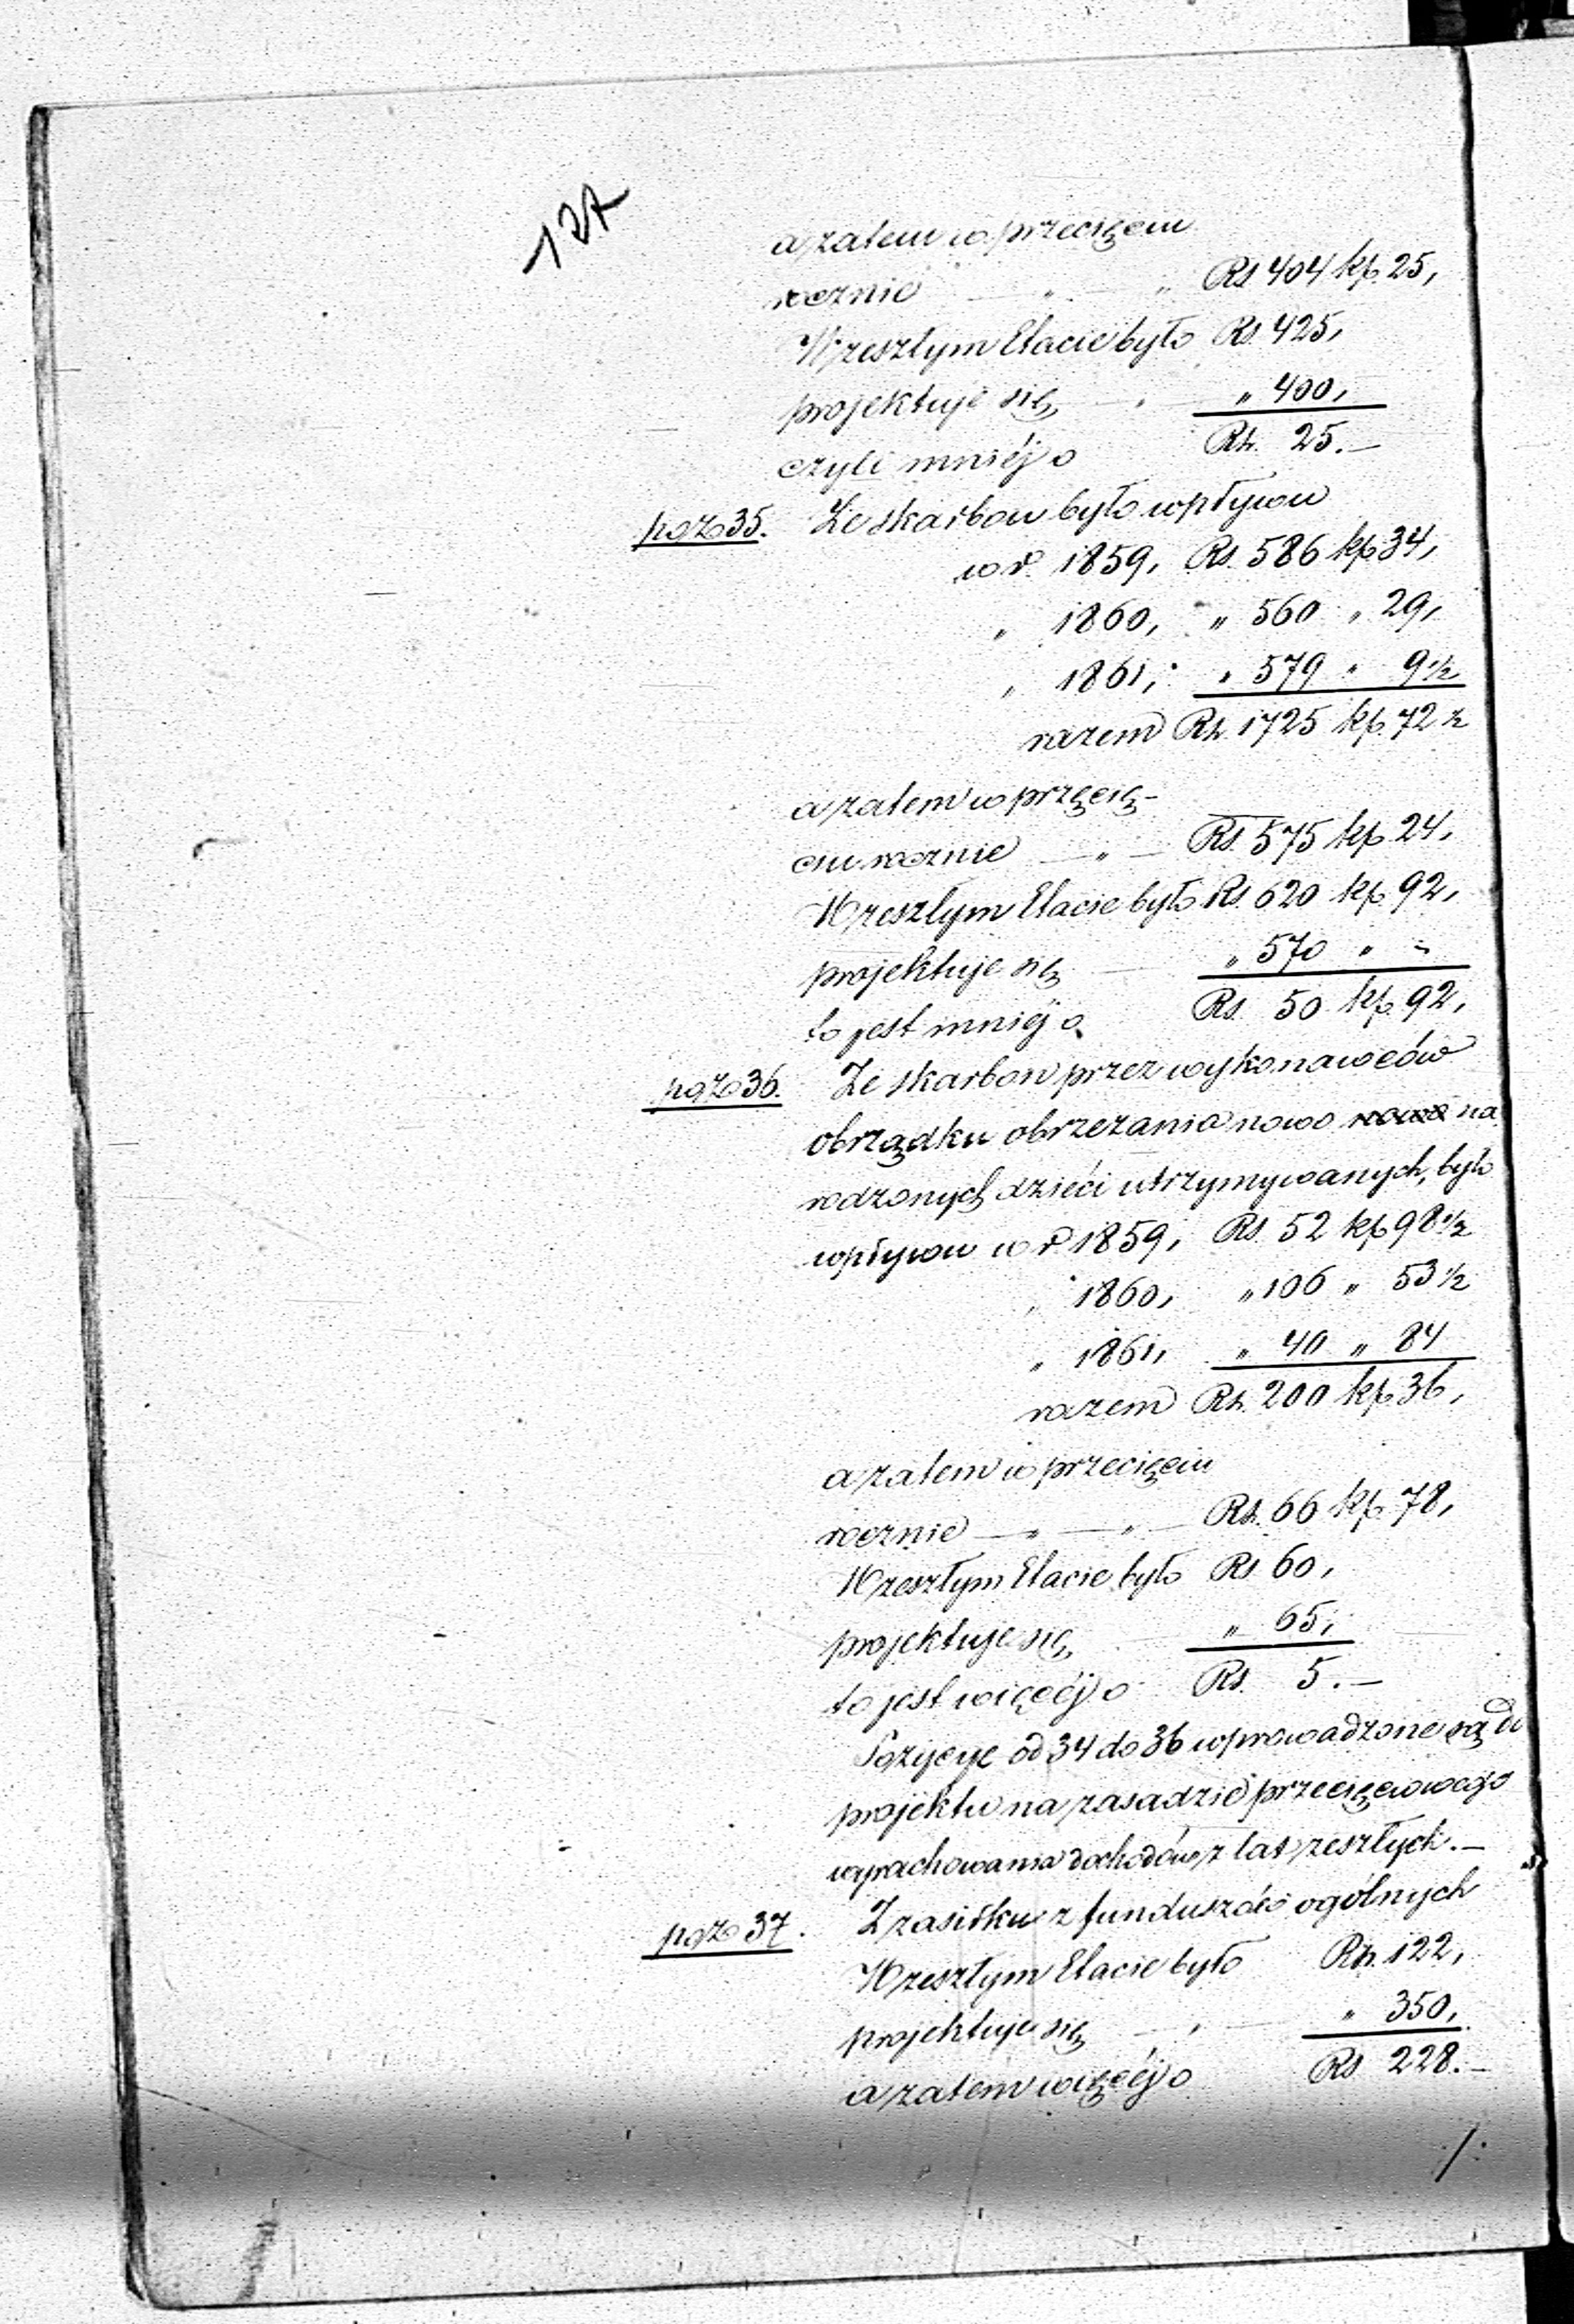 127
a zatem w przecięciu
rocznie — „ — „ Rs 404 kp. 25,
W zeszłym Etacie było Rs. 425,
projektuje się — „ — „ 400,
czyli mniéj o Rs. 25.—
poz 35. Ze skarbon było wpływu
w r. 1859, Rs. 586 kp 34,
„ 1860, „ 560 „ 29,
„ 1861, „ 579 „ 9 1/2
razem Rs. 1725 kp. 72 1/2
a zatem w przecię-
ciu rocznie — „ — Rs. 575 kp. 24,
W zeszłym Etacie było Rs. 620 kp. 92,
projektuje się — „ 570 „ -
to jest mniéj o Rs. 50 kp. 92,
poz 36. Ze skarbon przez wykonawców
obrządku obrzezania nowo na
rodzonych dzieci utrzymywanych, było
wpływu w r. 1859, Rs. 52 kp 98 1/2
„ 1860, „ 106 „ 53 1/2
„ 1861, „ 40 „ 84
razem Rs. 200 kp. 36,
a zatem w przecięciu
rocznie — „ — „ — Rs. 66 kp. 78,
W zeszłym Etacie było Rs 60,
projektuje się — „ 65,
to jest więcéj o Rs. 5.—
Pozycye od 34 do 36 wprowadzone są do
projektu na zasadzie przecięciowego
wyrachowania dochodów z lat zeszłych.—
poz 37. Z zasiłku z funduszów ogólnych
W zeszłym Etacie było Rs. 122,
projektuje się — „ — „ 350,
a zatem więcéj o Rs 228.—
./.